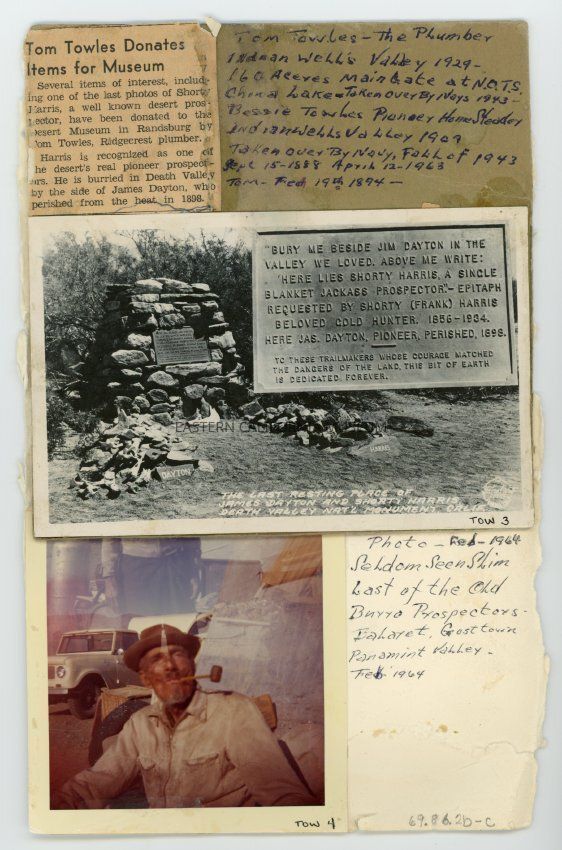 Tom Towles Donates
Items for Museum
Several items of interest, includ-
ing one of the last photos of Shorty
Harris, a well known desert pros-
pector, have been donated to the
Desert Museum in Randsburg by
Tom Towles, Ridgecrest plumber.
Harris is recognized as one of
the desert's real pioneer prospect-
ors. He is burried in Death Valley
by the side of James Dayton, who
perished from the heat in 1898.
Tom Towles - The Plumber
Indian Well's Valley 1929-
160 Aceres Main Gate at N.O.T.S.
China Lake - Taken Over By Navy 1943-
Bessie Towles Pioneer HomeSteader
Indian Wells Valley 1909
Taken over By Navy, Fall of 1943
Sept 15-1888 April 12-1963
Tom - Feb 19th 1894 -
"BURY ME BESIDE JIM DAYTON IN THE
VALLEY WE LOVED. ABOVE ME WRITE:
'HERE LIES SHORTY HARRIS, A SINGLE
BLANKET JACKASS PROSPECTOR.'" - EPITAPH
REQUESTED BY SHORTY (FRANK) HARRIS
BELOVED GOLD HUNTER. 1856-1934.
HERE JAS. DAYTON, PIONEER, PERISHED, 1898.
TO THESE TRAILMAKERS WHOSE COURAGE MATCHED
THE DANGERS OF THE LAND, THIS BIT OF EARTH
IS DEDICATED FOREVER.
EASTERN
DAYTON
HARRIS
THE LAST RESTING PLACE OF
JAMES DAYTON AND SHORTY HARRIS
DEATH VALLEY NAT'L MONUMENT, CALIF.
TOW 3
Photo - Feb - 1964
Seldom Seen Slim
Last of the Old
Burro Prospectors -
Ballaret, Gosttown
Panamint Valley -
Feb 1964
TOW 4
69.86.2b-c